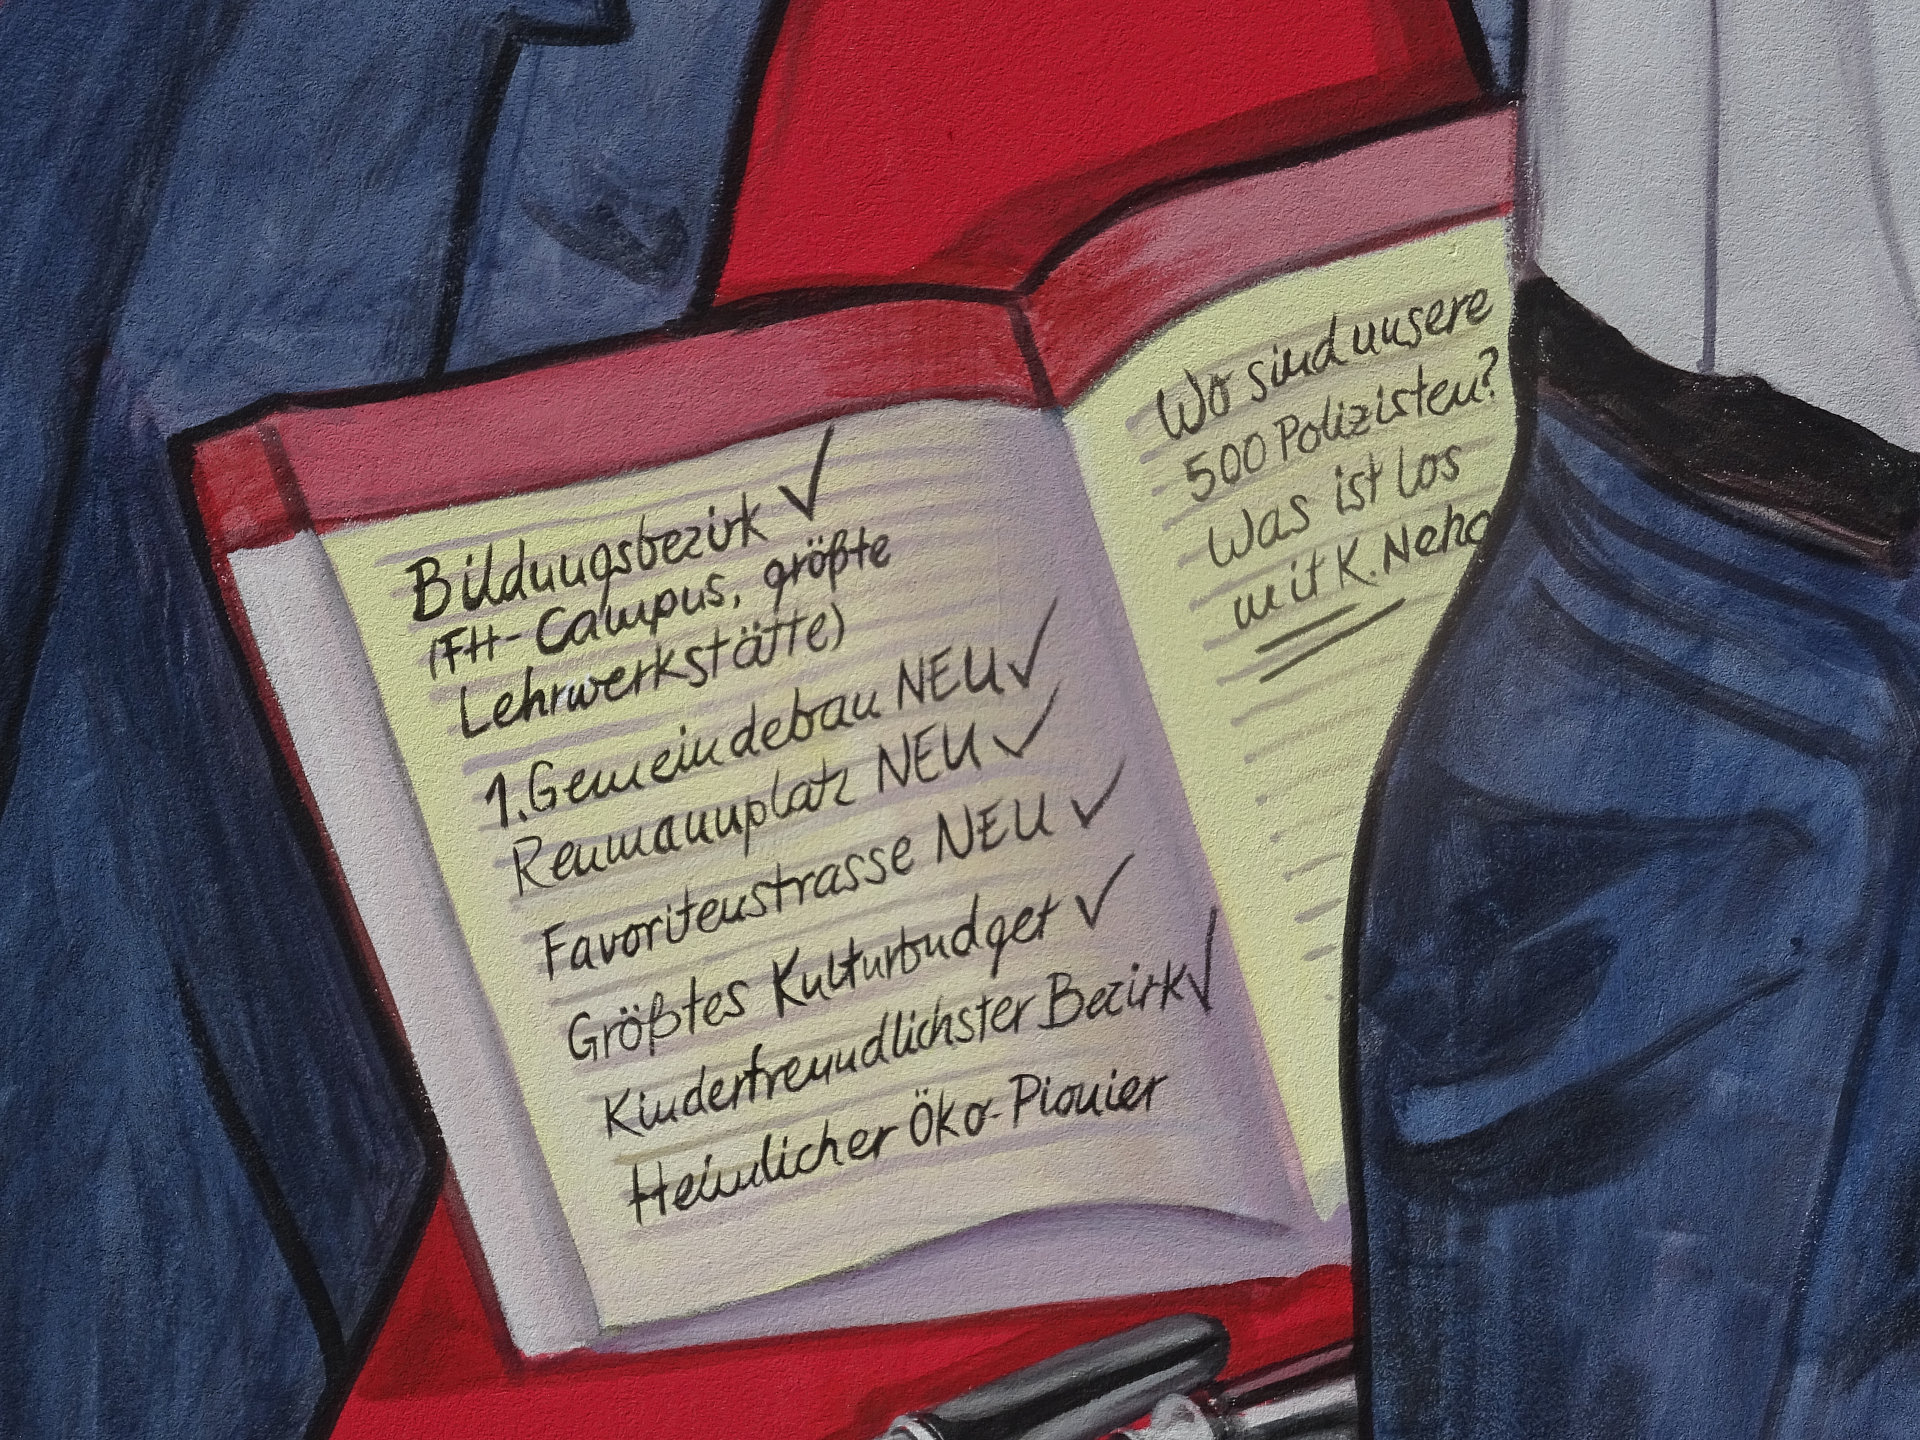 Bildungsbezirk ✓
(FH-Campus, größte
Lehrwerkstätte)
1. Gemeindebau NEU ✓
Reumannplatz NEU ✓
Favoritenstrasse NEU ✓
Größtes Kulturbudget ✓
Kinderfreundlichster Bezirk ✓
Heimlicher Öko-Pionier
Wo sind unsere
500 Polizisten?
Was ist los
mit K. Neha